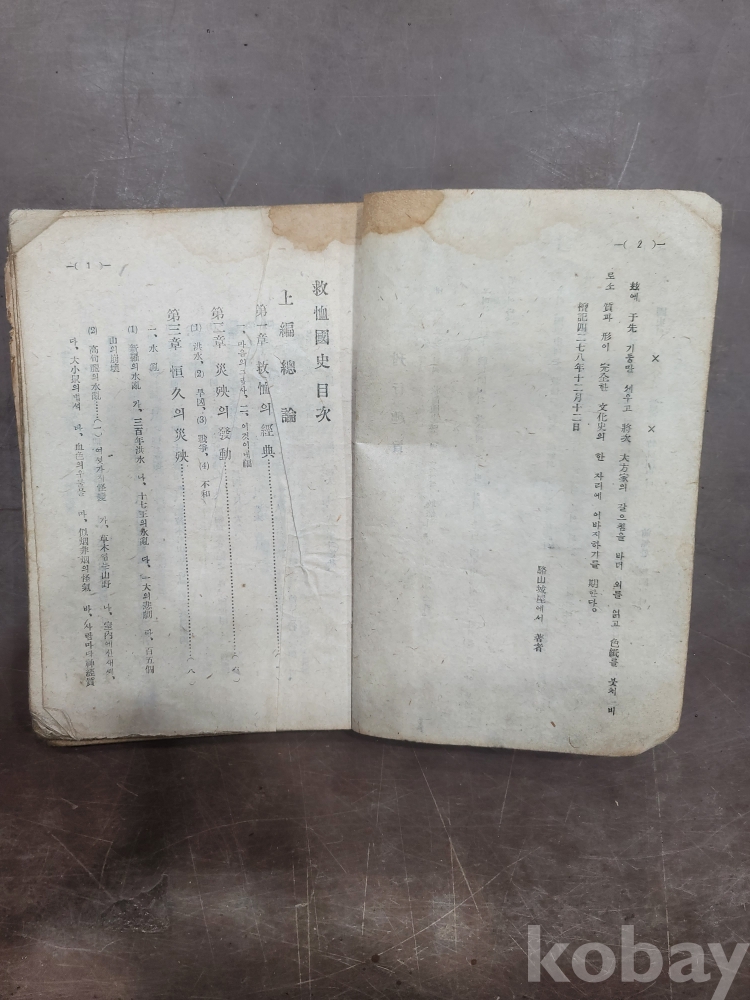 —( 2 )—
玆에 于先 기둥만 세우고 將次 大方家의 갈으침을 바더 외를 얽고 色紙를 붓처 비
로소 質과 形이 完全한 文化史의 한 자리에 이바지하기를 期한다。
× ×
檀記四二七八年十二月十二日
著者
—( 1 )—
救恤國史目次
上編 總論
第一章 救恤의 經典
第二章 災殃의 發動
(1) 洪水、(2) 旱凶、(3) 戰爭、(4) 不和
第三章 恒久의 災殃 (八)
一、水亂
(1) 新羅의水亂 가、三百年洪水 나、十七王의水亂 다、一大의悲劇 라、百五個
山의崩壞
(2) 高句麗의水亂 가、草木 나、室內에
kobay